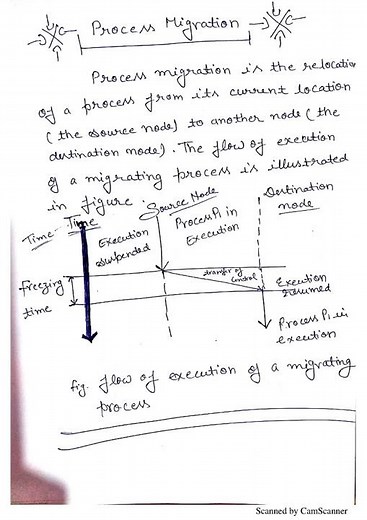 Process Migration
Process migration is the relocation
of a process from its current location
(the source node) to another node (the
destination node). The flow of execution
of a migrating process is illustrated
in figure.
Time
Time
Source Node
Destination
node
Execution
suspended
Process P1 in
Execution
transfer of
control
Freezing
time
Execution
resumed
Process P1 in
execution
fig. flow of execution of a migrating
process
Scanned by CamScanner